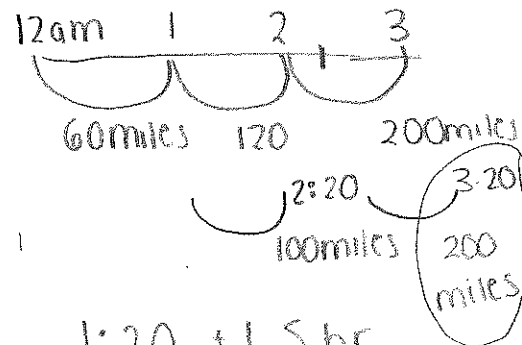 12am 1 2 3
60miles 120 200miles
2:20 3.20
100miles 200
miles
1:20 + 1.5 hr